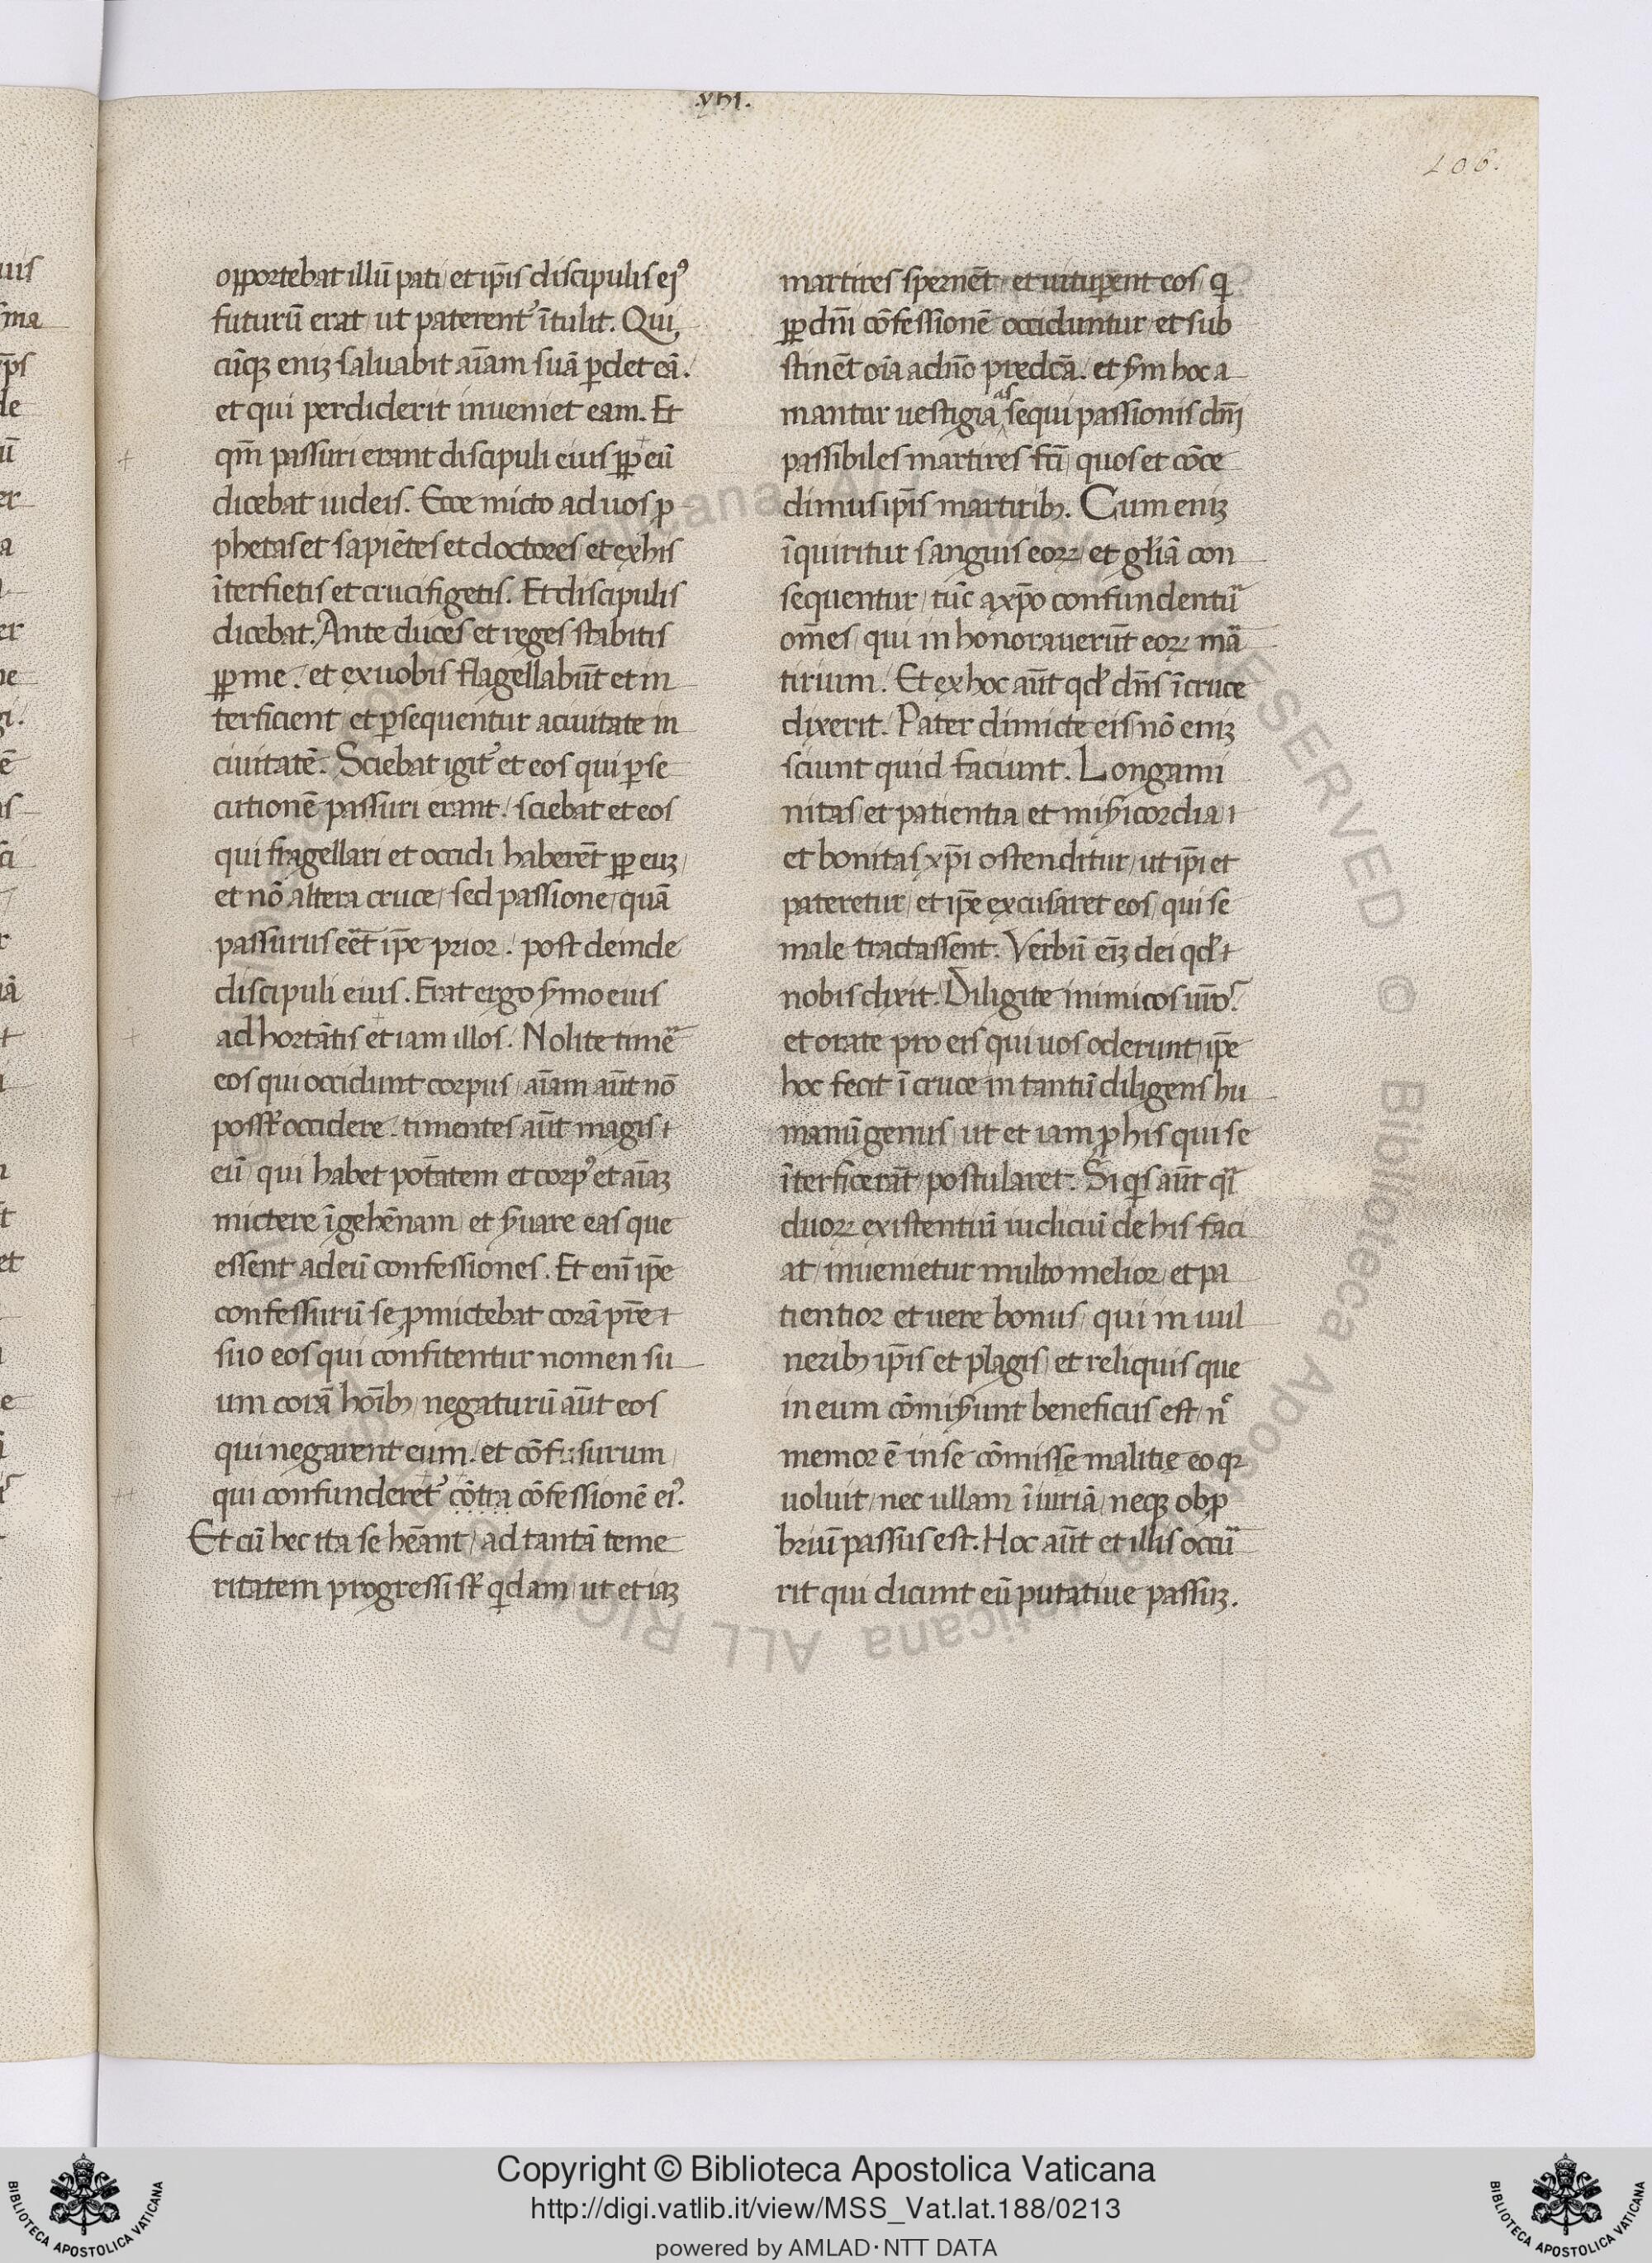 .xhi.
106.
opportebat illū pati, et ip̄is discipulis eiꝰ
futurū erat, ut paterent᷒ ītulit. Qui
cūqꝫ eniꝫ saluabit aīam suā ꝑdet eā.
et qui perdiderit inueniet eam. Et
qm̄ passuri erant discipuli eius ꝓꝑ eū
dicebat iudeis. Ecce micto ad uos ꝓ
phetas et sapiētes et doctores, et ex his
īterfietis et crucifigetis. Et discipulis
dicebat. Ante duces et reges stabitis
ꝓꝑ me. et ex uobis flagellabūt et in
terficient et ꝑsequentur a ciuitate in
ciuitatē. Sciebat igit᷒ et eos qui ꝑse
cutionē passuri erant. sciebat et eos
qui fragellari et occidi haberēt ꝓꝑ euꝫ,
et nō altera cruce, sed passione, quā
passurus eēt ip̄e prior. post deinde
discipuli eius. Erat ergo s̄mo eius
ad hortātis et iam illos. Nolite timē
eos qui occidunt corpus, aīam aūt nō
posst̄ occidere. timentes aūt magis
eū, qui habet potātem et corpꝰ et aīaꝫ
mictere ī gehēnam, et s̄uare eas que
essent ad eū confessiones. Et enī ip̄e
confessurū se ꝓmictebat corā pr̄e
suo eos qui confitentur nomen su
um corā hoīb; negaturū aūt eos
qui negarent eum. et cōfusurum,
qui confunderet᷒ cōtra cōfessionē eiꝰ.
Et cū hec ita se hēant, ad tantā teme
ritatem progressi st̄ qdam, ut et iaꝫ
martires spernēt, et uituꝑent eos, q
ꝓꝑ dn̄i cōfessionē occiduntur, et sub
stinēt oīa a dn̄o predcā. et s̄m hoc a
mantur uestigia as sequi passionis dn̄i
passibiles martires fc̄i, quos et cōce
dimus ip̄is martirib;. Cum eniꝫ
īquiritur sanguis eoꝝ, et gl̄iā con
sequentur, tūc a xp̄o confundentū
om̄es, qui in honorauerūt eoꝝ mā
tirium. Et ex hoc aūt qd̄ dn̄s ī cruce
dixerit. Pater dimicte eis, nō eniꝫ
sciunt quid faciunt. Longami
nitas et patientia, et mis̄icordia,
et bonitas xp̄i ostenditur, ut ip̄i et
pateretur, et ip̄e excusaret eos, qui se
male tractassent. Verbū eīꝫ dei qd̄
nobis dixit. Diligite inimicos ur̄o᷒
et orate pro eis qui uos oderunt, ip̄e
hoc fecit ī cruce in tantū diligens hu
manū genus, ut et iam ꝓ his qui se
īterficerāt, postularet. Si qs aūt qi
duoꝝ existentiū iudiciū de his faci
at, inuenietur multo melior, et pa
tientior et uere bonus, qui in uul
nerib; ip̄is et plagis, et reliquis que
in eum cōmis̄unt beneficus est, n̊
memor ē in se cōmisse malitię eo qꝛ
uoluit, nec ullam īiuriā, neqꝫ obꝓ
briū passus est. Hoc aūt et illis occū
rit qui dicunt eū putatiue passuꝫ.
Copyright © Biblioteca Apostolica Vaticana
http://digi.vatlib.it/view/MSS_Vat.lat.188/0213
powered by AMLAD·NTT DATA
BIBLIOTECA APOSTOLICA VATICANA
BIBLIOTECA APOSTOLICA VATICANA